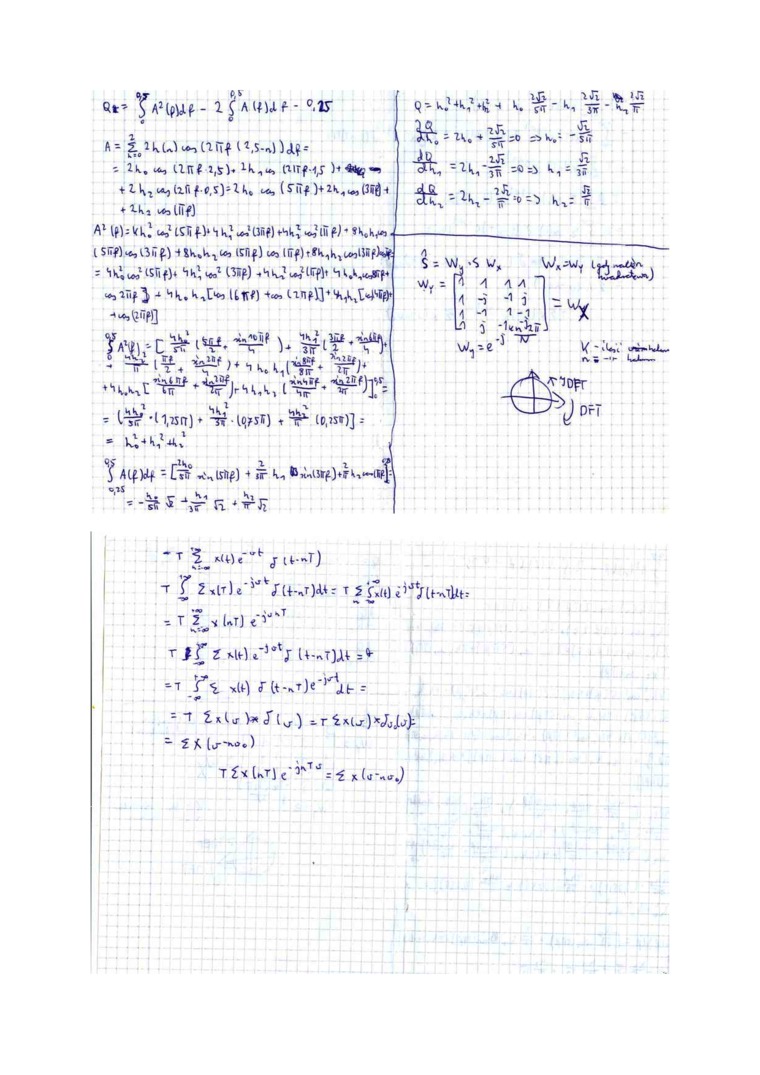 Q = ∫₀^0,5 A²(f)df - 2 ∫₀^0,5 A(f)df - 0,25
A = Σ_{n=0}^{2} 2h(n) cos(2πf(2,5-n))df =
= 2h₀ cos(2πf·2,5) + 2h₁ cos(2πf·1,5) +
+ 2h₂ cos(2πf·0,5) = 2h₀ cos(5πf) + 2h₁ cos(3πf) +
+ 2h₂ cos(πf)
A²(f) = 4h₀² cos²(5πf) + 4h₁² cos²(3πf) + 4h₂² cos²(πf) + 8h₀h₁ cos
(5πf) cos(3πf) + 8h₀h₂ cos(5πf) cos(πf) + 8h₁h₂ cos(3πf) cosπf =
= 4h₀² cos²(5πf) + 4h₁² cos²(3πf) + 4h₂² cos²(πf) + 4h₀h₁ cos8πf +
cos 2πf] + 4h₀h₂[cos(6πf) + cos(2πf)] + 4h₁h₂[cos(4πf) +
+ cos(2πf)]
∫₀^0,5 A²(f) = [4h₀²/5π (5πf/2 + sin10πf/4) + 4h₁²/3π (3πf/2 + sin(6πf)/4) +
+ 4h₂²/π (πf/2 + sin2πf/4) + 4h₀h₁(sin8πf/8π + sin2πf/2π) +
+ 4h₀h₂[sin6πf/6π + sin2πf/2π) + 4h₁h₂(sin4πf/4π + sin2πf/2π)]₀^0,5 =
= (4h₀²/5π · (1,25π) + 4h₁²/3π · (0,75π) + 4h₂²/π (0,25π)] =
= h₀² + h₁² + h₂²
∫_{0,25}^{0,5} A(f)df = [2h₀/5π sin(5πf) + 2/3π h₁ sin(3πf) + 2/π h₂ sin(πf)] =
= - h₀/5π √2 + h₁/3π √2 + h₂/π √2
Q = h₀² + h₁² + h₂² + h₀ 2√2/5π - h₁ 2√2/3π - h₂ 2√2/π
∂Q/dh₀ = 2h₀ + 2√2/5π = 0 => h₀ = -√2/5π
dQ/dh₁ = 2h₁ - 2√2/3π = 0 => h₁ = √2/3π
dQ/dh₂ = 2h₂ - 2√2/π = 0 => h₂ = √2/π
Ŝ = W_y · S W_x W_x = W_y
W_y = [1 1 1 1
1 -j -1 j
1 -1 1 -1
1 j -1 -j] = W_x
W_y = e^{-j kn 2π/N}
IDFT
DFT
= T Σ_{n=-∞}^{+∞} x(t) e^{-jωt} δ(t-nT)
T ∫_{-∞}^{+∞} Σ x(T) e^{-jωt} δ(t-nT)dt = T Σ_n ∫_{-∞}^{+∞} x(t) e^{-jωt} δ(t-nT)dt =
= T Σ_{n=-∞}^{+∞} x(nT) e^{-jωnT}
T ∫_{-∞}^{+∞} Σ x(t) e^{-jωt} δ(t-nT)dt =
= T ∫_{-∞}^{+∞} Σ x(t) δ(t-nT) e^{-jωt} dt =
= T Σ x(ω) * δ(ω) = T Σ x(ω) * δ_{ω₀}(ω) =
= Σ X(ω-nω₀)
T Σ x(nT) e^{-jnTω} = Σ x(ω-nω₀)